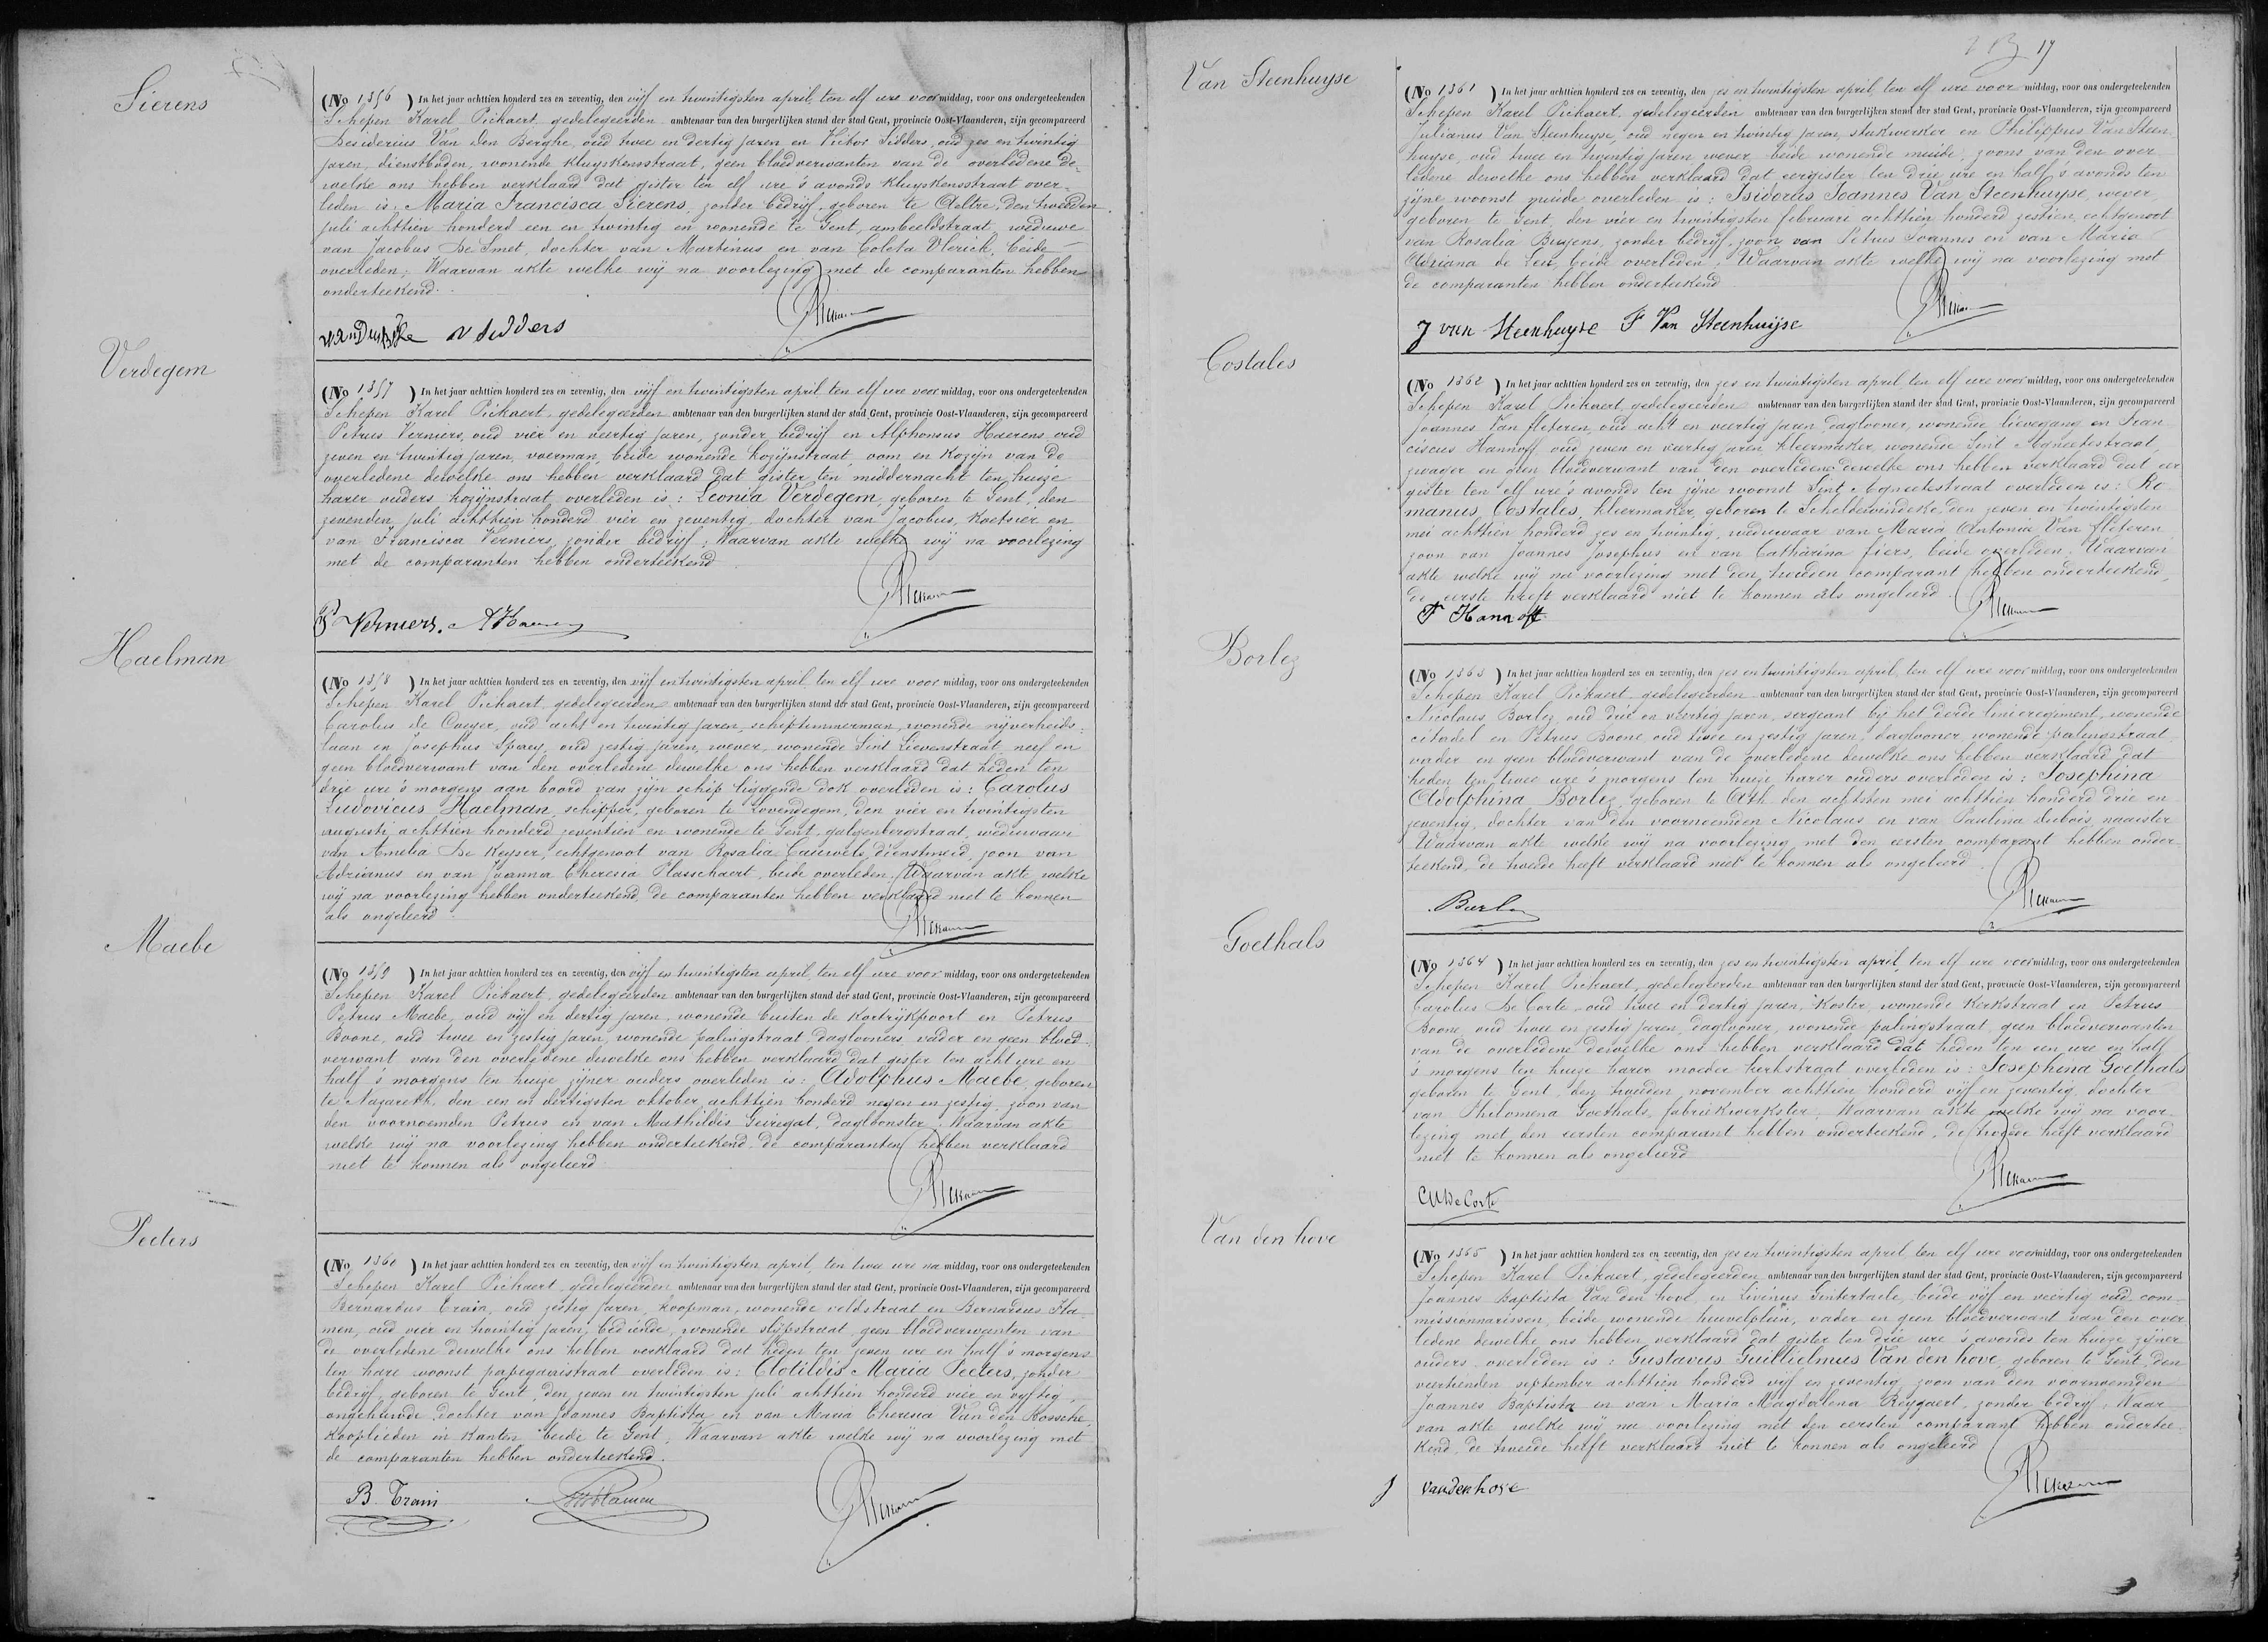 Sierens
(No 1356) In het jaar achttien honderd zes en zeventig, den vijf en twintigsten april, ten elf ure voor middag, voor ons ondergeteekenden
Schepen Karel Pickaert, gedelegeerden ambtenaar van den burgerlijken stand der stad Gent, provincie Oost-Vlaanderen, zijn gecompareerd
Desiderius Van Den Berghe, oud twee en dertig jaren en Victor Sidders, oud zes en twintig
jaren, dienstboden, wonende kluyskensstraat, geen bloedverwanten van de overledene de-
welke ons hebben verklaard dat gister ten elf ure 's avonds kluyskensstraat over-
leden is: Maria Francisca Sierens, zonder bedrijf, geboren te Aeltre, den tweeden
juli achttien honderd een en twintig en wonende te Gent, ambeeldstraat, weduwe
van Jacobus De Smet, dochter van Martinus en van Coleta Vlerick, beide
overleden; Waarvan akte welke wij na voorlezing met de comparanten hebben
onderteekend.
V Sidders
Verdegem
(No 1357) In het jaar achttien honderd zes en zeventig, den vijf en twintigsten april, ten elf ure voor middag, voor ons ondergeteekenden
Schepen Karel Pickaert, gedelegeerden ambtenaar van den burgerlijken stand der stad Gent, provincie Oost-Vlaanderen, zijn gecompareerd
Petrus Verniers, oud vier en veertig jaren, zonder bedrijf en Alphonsus Haerens oud
zeven en twintig jaren, voerman, beide wonende kozijnstraat, oom en kozyn van de
overledene dewelke ons hebben verklaard dat gister ten middernacht ten huize
harer ouders kozijnstraat overleden is: Leonia Verdegem, geboren te Gent, den
zevenden juli achttien honderd vier en zeventig, dochter van Jacobus, koetsier en
van Francisca Verniers, zonder bedrijf; Waarvan akte welke wij na voorlezing
met de comparanten hebben onderteekend
P Verniers. A Haerens
Haelman
(No 1358) In het jaar achttien honderd zes en zeventig, den vijf en twintigsten april, ten elf ure voor middag, voor ons ondergeteekenden
Schepen Karel Pickaert, gedelegeerden ambtenaar van den burgerlijken stand der stad Gent, provincie Oost-Vlaanderen, zijn gecompareerd
Carolus de Coeyer, oud acht en twintig jaren, scheptimmerman, wonende nijverheids-
laan en Josephus Spaey, oud zestig jaren, wever, wonende Sint Lievenstraat, neef en
geen bloedverwant van den overledene dewelke ons hebben verklaard dat heden ten
drie ure 's morgens aan boord van zijn schip liggende dok overleden is: Carolus
Ludovicus Haelman, schipper, geboren te Lovendegem, den vier en twintigsten
augusti achttien honderd zeventien en wonende te Gent, galgenbergstraat, weduwaar
van Amelia De Keyser, echtgenoot van Rosalia Cauwels, dienstmeid, zoon van
Adrianus en van Joanna Theresia Plasschaert, beide overleden. Waarvan akte welke
wij na voorlezing hebben onderteekend, de comparanten hebben verklaard niet te konnen
als ongeleerd
Maebe
(No 1359) In het jaar achttien honderd zes en zeventig, den vijf en twintigsten april, ten elf ure voor middag, voor ons ondergeteekenden
Schepen Karel Pickaert, gedelegeerden ambtenaar van den burgerlijken stand der stad Gent, provincie Oost-Vlaanderen, zijn gecompareerd
Petrus Maebe, oud vijf en dertig jaren, wonende buiten de kortrijkpoort en Petrus
Boone, oud twee en zestig jaren, wonende palingstraat, dagloners, vader en geen bloed-
verwant van den overledene dewelke ons hebben verklaard dat gister ten acht ure en
half 's morgens ten huize zijner ouders overleden is: Adolphus Maebe, geboren
te Nazareth, den een en dertigsten oktober achttien honderd negen en zestig, zoon van
den voornoemden Petrus en van Mathildis Geiregat, dagloonster. Waarvan akte
welke wij na voorlezing hebben onderteekend, de comparanten hebben verklaard
niet te konnen als ongeleerd
Peeters
(No 1360) In het jaar achttien honderd zes en zeventig, den vijf en twintigsten april, ten twee ure na middag, voor ons ondergeteekenden
Schepen Karel Pickaert, gedelegeerden ambtenaar van den burgerlijken stand der stad Gent, provincie Oost-Vlaanderen, zijn gecompareerd
Bernardus Train, oud zestig jaren, koopman, wonende veldstraat en Bernardus Ha-
men, oud vier en twintig jaren, bediende, wonende slijpstraat, geen bloedverwanten van
de overledene dewelke ons hebben verklaard dat heden ten zeven ure en half 's morgens
ten hare woonst papegaaistraat overleden is: Clotildis Maria Peeters, zonder
bedrijf, geboren te Gent, den zeven en twintigsten juli achttien honderd vier en vyftig,
ongehuwde dochter van Joannes Baptista en van Maria Theresia Van den Bossche,
kooplieden in kanten beide te Gent, Waarvan akte welke wij na voorlezing met
de comparanten hebben onderteekend.
B. Train
17
Van Steenhuyse
(No 1361) In het jaar achttien honderd zes en zeventig, den zes en twintigsten april, ten elf ure voor middag, voor ons ondergeteekenden
Schepen Karel Pickaert, gedelegeerden ambtenaar van den burgerlijken stand der stad Gent, provincie Oost-Vlaanderen, zijn gecompareerd
Julianus Van Steenhuyse, oud negen en twintig jaren, stukwerker en Philippus Van Steen-
huyse, oud twee en twentig jaren, wever, beide wonende muide, zoons van den over-
ledene dewelke ons hebben verklaard dat eergister ten drie ure en half 's avonds ten
zijne woonst muide overleden is: Isidorus Joannes Van Steenhuyse, wever
geboren te Gent, den vier en twintigsten februari achttien honderd zestien, echtgenoot
van Rosalia Buysens, zonder bedrijf, zoon van Petrus Joannes en van Maria
Adriana de Leu, beide overleden; Waarvan akte welke wij na voorlezing met
de comparanten hebben onderteekend
J van Steenhuyse F Van Steenhuijse
Costales
(No 1362) In het jaar achttien honderd zes en zeventig, den zes en twintigsten april, ten elf ure voor middag, voor ons ondergeteekenden
Schepen Karel Pickaert, gedelegeerden ambtenaar van den burgerlijken stand der stad Gent, provincie Oost-Vlaanderen, zijn gecompareerd
Joannes Van fleteren, oud acht en veertig jaren, daglooner, wonende lievegang en Fran-
ciscus Hannoff, oud zeven en veertig jaren, kleermaker, wonende Sint Agneetestraat,
zwager en geen bloedverwant van den overledene dewelke ons hebben verklaard dat eer
gister ten elf ure 's avonds ten zijne woonst Sint Agneetestraat overleden is: Ro
manus Costales, kleermaker, geboren te Scheldewindeke, den zeven en twintigsten
mei achttien honderd zes en twintig, weduwaar van Maria Antonia Van fleteren,
zoon van Joannes Josephus en van Catharina fiers, beide overleden. Waarvan
akte welke wij na voorlezing met den tweeden comparant hebben onderteekend,
de eerste heeft verklaard niet te konnen als ongeleerd
F Hannoff
Borlez
(No 1363) In het jaar achttien honderd zes en zeventig, den zes en twintigsten april, ten elf ure voor middag, voor ons ondergeteekenden
Schepen Karel Pickaert gedelegeerden ambtenaar van den burgerlijken stand der stad Gent, provincie Oost-Vlaanderen, zijn gecompareerd
Nicolaus Borlez, oud drie en veertig jaren, sergeant bij het derde linieregiment, wonende
citadel en Petrus Boone, oud twee en zestig jaren, daglooner, wonende palingstraat,
vader en geen bloedverwant van de overledene dewelke ons hebben verklaard dat
heden ten twee ure 's morgens ten huize harer ouders overleden is: Josephina
Adolphina Borlez, geboren te Ath den achtsten mei achttien honderd drie en
zeventig, dochter van den voornoemden Nicolaus en van Paulina Dubois, naaister
Waarvan akte welke wij na voorlezing met den eersten comparant hebben onder-
teekend, de tweede heeft verklaard niet te konnen als ongeleerd
Goethals
(No 1364) In het jaar achttien honderd zes en zeventig, den zes en twintigsten april, ten elf ure voor middag, voor ons ondergeteekenden
Schepen Karel Pickaert, gedelegeerden ambtenaar van den burgerlijken stand der stad Gent, provincie Oost-Vlaanderen, zijn gecompareerd
Carolus De Corte, oud twee en dertig jaren, koster, wonende kerkstraat en Petrus
Boone, oud twee en zestig jaren, daglooner, wonende palingstraat, geen bloedverwanten
van de overledene dewelke ons hebben verklaard dat heden ten een ure en half
's morgens ten huize harer moeder kerkstraat overleden is: Josephina Goethals
geboren te Gent, den tweeden november achttien honderd vijf en zeventig, dochter
van Philomena Goethals, fabriekwerkster; Waarvan akte welke wij na voor-
lezing met den eersten comparant hebben onderteekend, de tweede heeft verklaard
niet te konnen als ongeleerd
De Corte
Van den hove
(No 1365) In het jaar achttien honderd zes en zeventig, den zes en twintigsten april, ten elf ure voor middag, voor ons ondergeteekenden
Schepen Karel Pickaert, gedelegeerden ambtenaar van den burgerlijken stand der stad Gent, provincie Oost-Vlaanderen, zijn gecompareerd
Joannes Baptista Van den hove en Livinus Gentertaele, beide vijf en veertig oud, com-
missionnarissen, beide wonende heuvelplein, vader en geen bloedverwant van den over-
ledene dewelke ons hebben verklaard dat gister ten drie ure 's avonds ten huize zijner
ouders overleden is: Gustavus Guillielmus Van den hove, geboren te Gent, den
veertienden september achttien honderd vijf en zeventig, zoon van den voornoemden
Joannes Baptista en van Maria Magdalena Reygaert, zonder bedrijf. Waar
van akte welke wij na voorlezing met den eersten comparant hebben onderteе-
kend, de tweede heeft verklaard niet te konnen als ongeleerd
J vandenhove